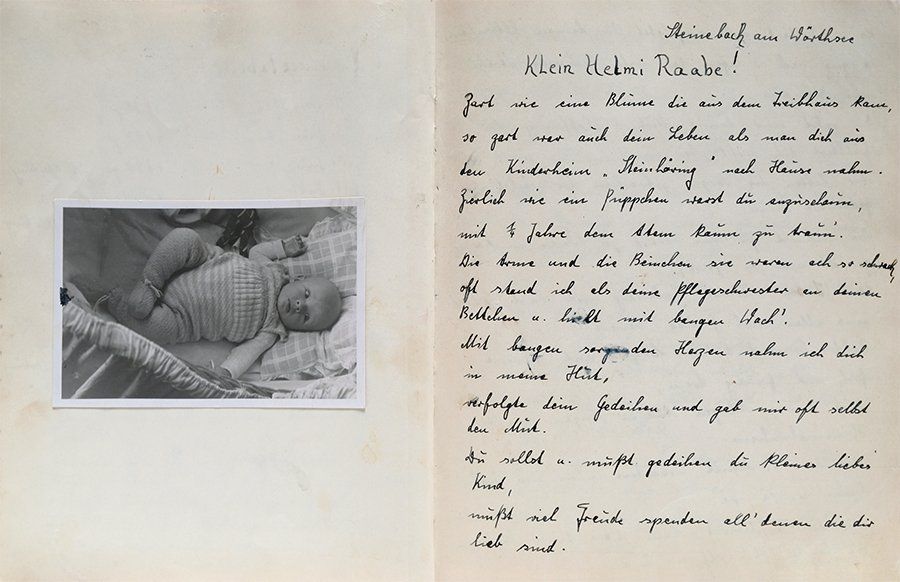 Steinebach am Wörthsee
Klein Helmi Raabe!
Zart wie eine Blume die aus dem Treibhaus kam,
so zart war auch dein Leben als man dich aus
den Kinderheim „Steinhöring" nach Hause nahm.
Zierlich wie ein Püppchen warst du anzuschaun,
mit ¾ Jahre dem Atem kaum zu traun'.
Die Arme und die Beinchen sie waren ach so schwach,
oft stand ich als deine Pflegeschwester an deinen
Bettchen u. hielt mit bangen Wach'.
Mit bangen sorgenden Herzen nahm ich dich
in meine Hut,
verfolgte dein Gedeihen und gab mir oft selbst
den Mut.
Du sollst u. mußt gedeihen du kleines liebes
Kind,
mußt viel Freude spenden all' denen die dir
lieb sind.